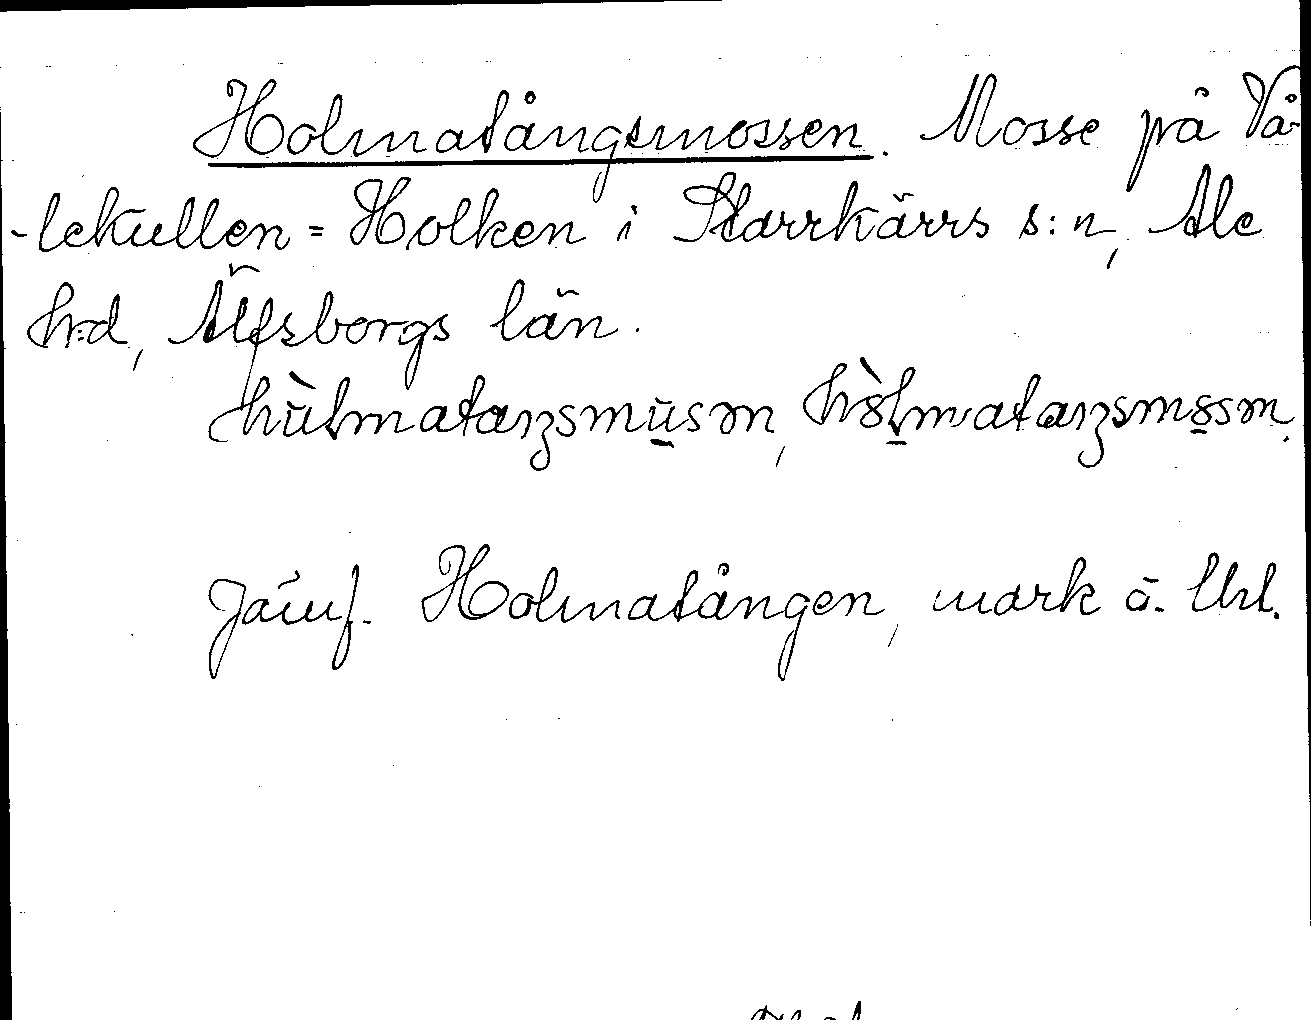 Holmatångsmossen. Mosse på Vå-
-lekullen = Holken i Starrkärrs s:n, Ale
h:d, Älfsborgs län.
hùlmataŋsmu̲sən, hòl̲mataŋsmo̲sən.
Jämf. Holmatången, mark å.